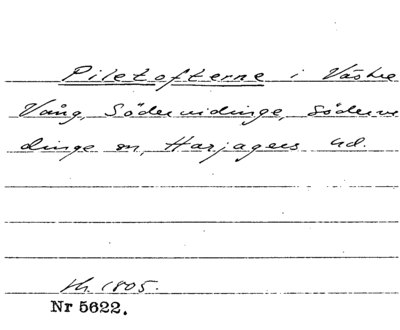 Piletofterne i Västra
Vång, Södervidinge, Södervi
dinge sn, Harjagers hd.
Nr 5622.